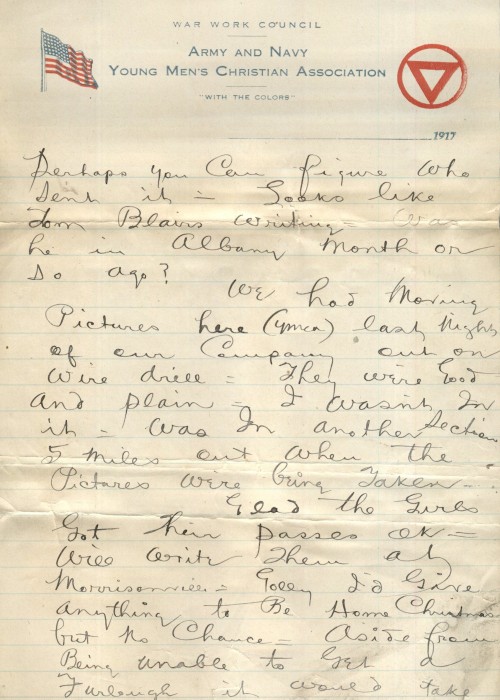 WAR WORK COUNCIL
ARMY AND NAVY
YOUNG MEN'S CHRISTIAN ASSOCIATION
"WITH THE COLORS"
1917
Perhaps you Can figure who
Sent it - Looks like
Tom Blairs writing - Was
he in Albany Month or
so ago?
We had Moving
Pictures here (ymca) last Night
of our Company out on
Wire drill - They were Good
And plain - I wasnt In
it - Was In another Section
5 miles out when the
Pictures were being Taken -
Glad the Girls
Got their passes OK -
Will write Them at
Morrisonville - Golly I'd Give
Anything to Be Home Christmas
but No Chance - Aside from
Being unable to Get a
Furlough it would take